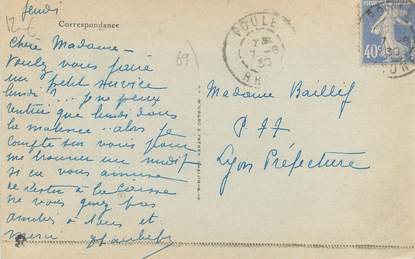 Jeudi
Correspondance
Chère Madame -
Voulez vous faire
un petit service
lundi ? ... Je ne peux
rentrer que lundi dans
la matinée .. alors je
compte sur vous pour
me trouver un
si ça vous amuse
rester à la caisse
ne vous gênez pas
amitiés à tous et
merci
69
POULE
7-8
30
RH
40
Madame Baillif
P. T T
Lyon Préfecture